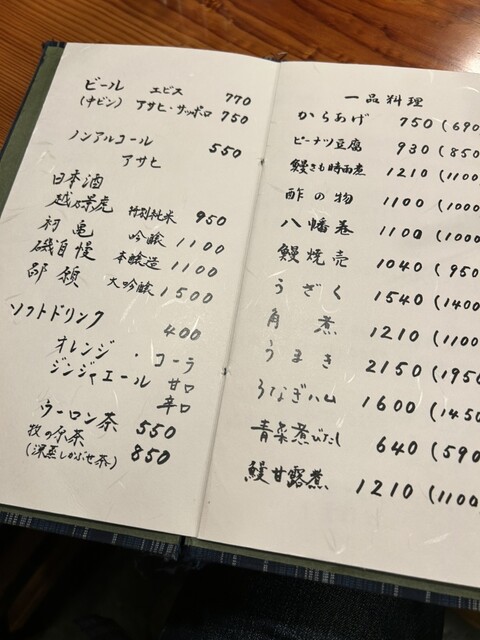 ビール エビス 770
(中ビン) アサヒ・サッポロ 750
ノンアルコール
アサヒ 550
日本酒
越乃景虎 特別純米 950
初亀 吟醸 1100
磯自慢 本醸造 1100
大吟醸 1500
ソフトドリンク
400
オレンジ・コーラ
ジンジャエール 甘口
辛口
ウーロン茶 550
牧の原茶 850
(深蒸しかぶせ茶)
一品料理
からあげ 750 (690
ピーナツ豆腐 930 (850
鰻きも時雨煮 1210 (1100
酢の物 1100 (1000
八幡巻 1100 (1000
鰻焼売 1040 (950
うざく 1540 (1400
角煮 1210 (1100
うまき 2150 (1950
うなぎハム 1600 (1450
青菜煮びたし 640 (590
鰻甘露煮 1210 (1100